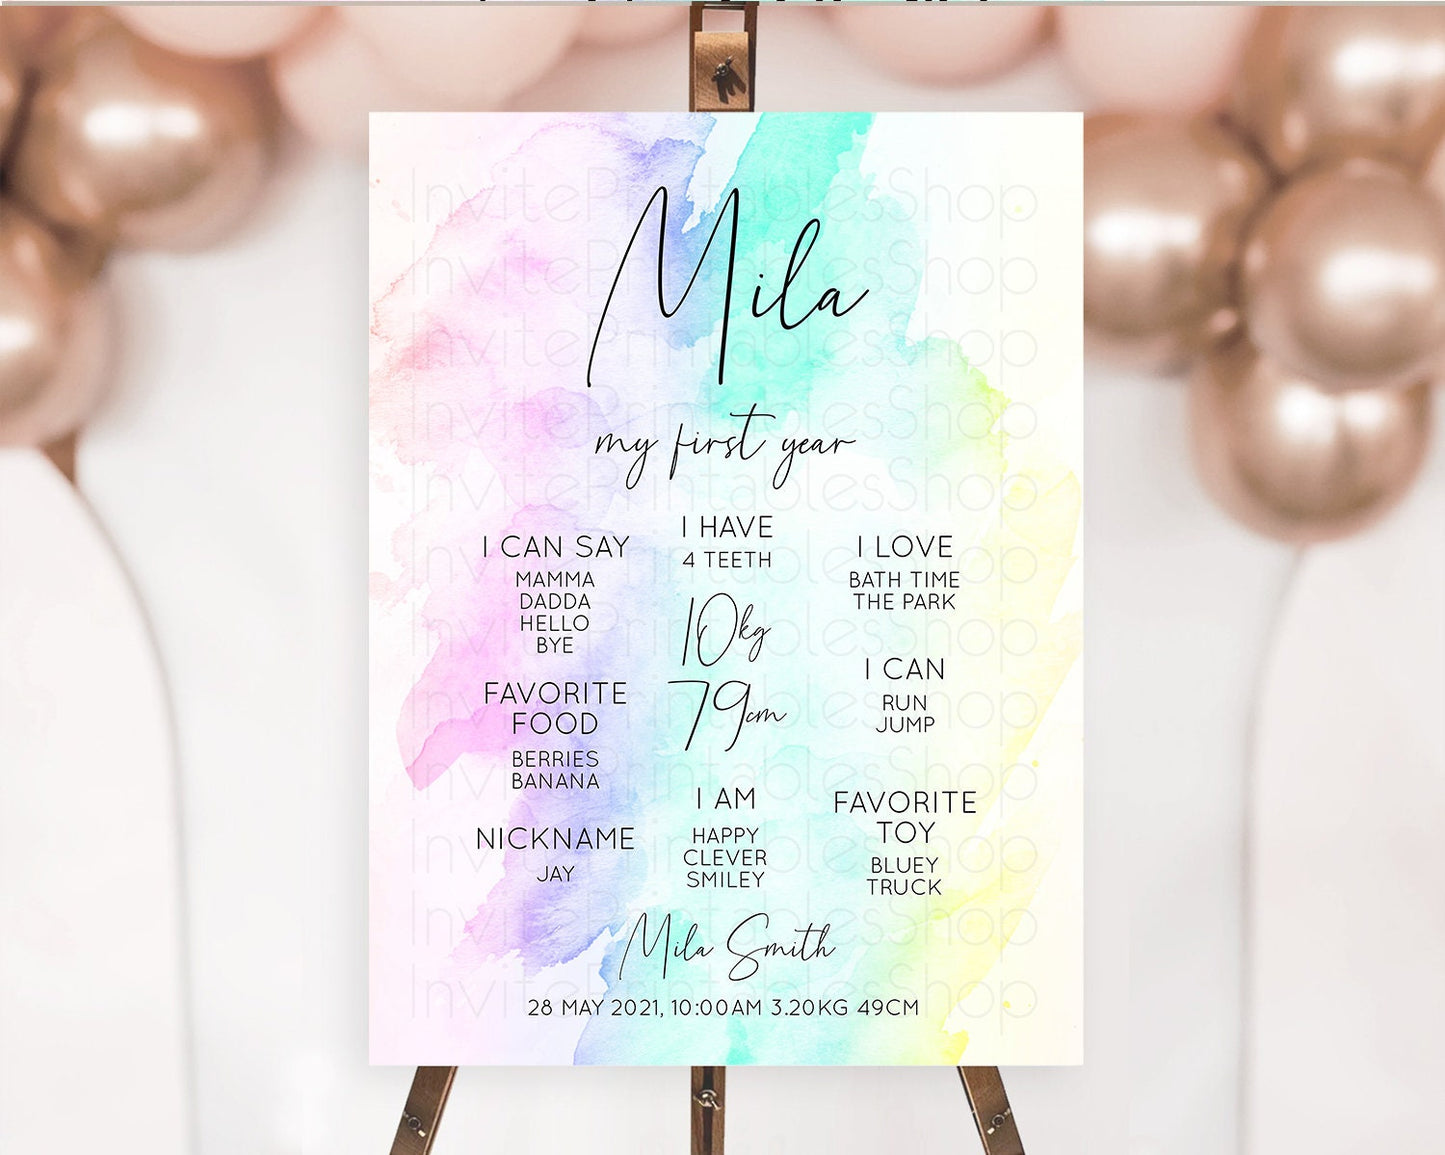 Mila
my first year
I HAVE
4 TEETH
I CAN SAY
MAMMA
DADDA
HELLO
BYE
I LOVE
BATH TIME
THE PARK
10kg
79cm
I CAN
RUN
JUMP
FAVORITE
FOOD
BERRIES
BANANA
I AM
HAPPY
CLEVER
SMILEY
FAVORITE
TOY
BLUEY
TRUCK
NICKNAME
JAY
Mila Smith
28 MAY 2021, 10:00AM 3.20KG 49CM
InvitePrintablesShop
InvitePrintablesShop
InvitePrintablesShop
InvitePrintablesShop
InvitePrintablesShop
InvitePrintablesShop
InvitePrintablesShop
InvitePrintablesShop
InvitePrintablesShop
InvitePrintablesShop
InvitePrintablesShop
InvitePrintablesShop
InvitePrintablesShop